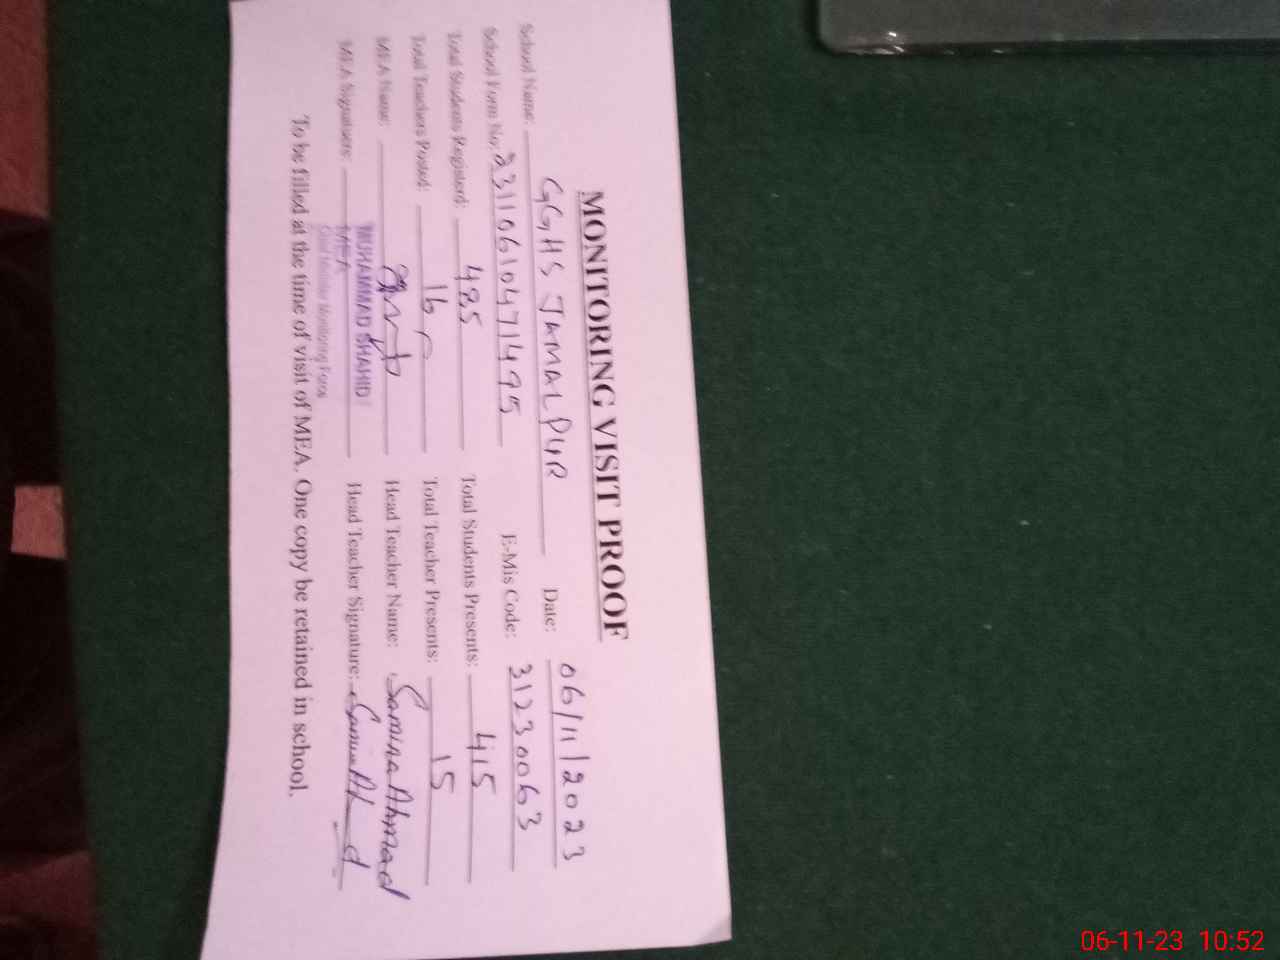 MONITORING VISIT PROOF
School Name: GGHS JAMALPUR Date: 06/11/2023
School Form No: 23110610471495 E-Mis Code: 31230063
Total Students Registerd: 485 Total Students Presents: 415
Total Teachers Posted: 16 Total Teacher Presents: 15
MEA Name: Head Teacher Name: Samina Ahmad
MEA Signature: Head Teacher Signature:
MUHAMMAD SHAHID
MEA
Chief Minister Monitoring Force
To be filled at the time of visit of MEA. One copy be retained in school.
06-11-23 10:52